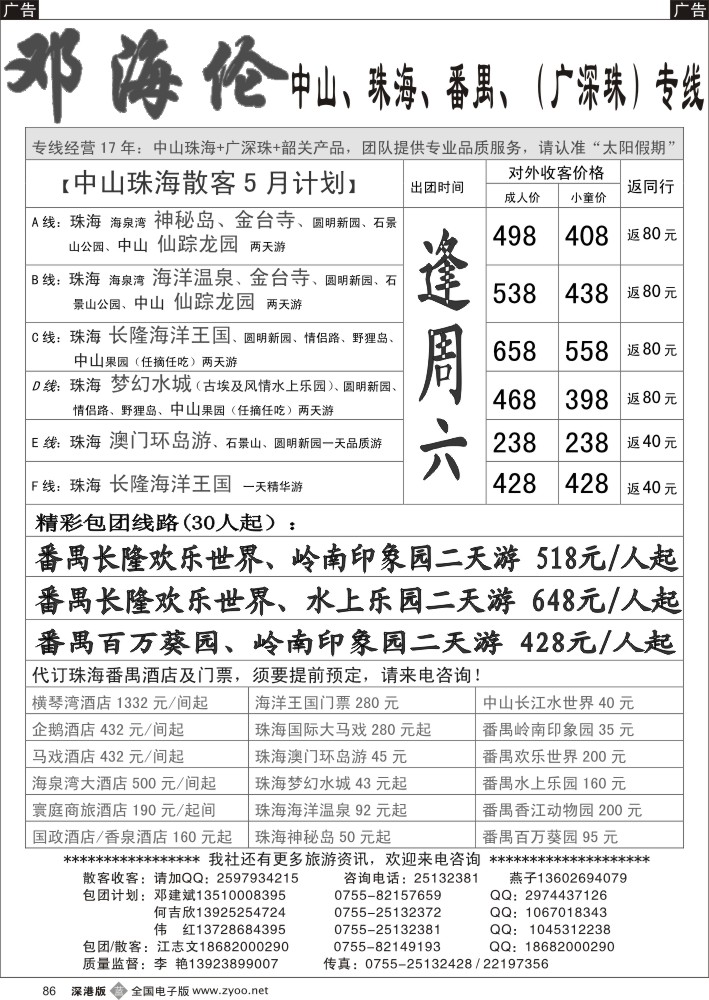 广告
广告
邓海伦中山、珠海、番禺、（广深珠）专线
专线经营17年：中山珠海+广深珠+韶关产品，团队提供专业品质服务，请认准“太阳假期”
【中山珠海散客5月计划】
出团时间
对外收客价格
成人价
小童价
返同行
A线：珠海 海泉湾 神秘岛、金台寺、圆明新园、石景
山公园、中山 仙踪龙园 两天游
498
408
返80元
B线：珠海 海泉湾 海洋温泉、金台寺、圆明新园、石
景山公园、中山 仙踪龙园 两天游
538
438
返80元
C线：珠海 长隆海洋王国、圆明新园、情侣路、野狸岛、
中山果园（任摘任吃）两天游
658
558
返80元
D线：珠海 梦幻水城（古埃及风情水上乐园）、圆明新园、
情侣路、野狸岛、中山果园（任摘任吃）两天游
468
398
返80元
E线：珠海 澳门环岛游、石景山、圆明新园一天品质游
238
238
返40元
F线：珠海 长隆海洋王国 一天精华游
428
428
返40元
逢周六
精彩包团线路(30人起)：
番禺长隆欢乐世界、岭南印象园二天游 518元/人起
番禺长隆欢乐世界、水上乐园二天游 648元/人起
番禺百万葵园、岭南印象园二天游 428元/人起
代订珠海番禺酒店及门票，须要提前预定，请来电咨询！
横琴湾酒店1332元/间起
海洋王国门票280元
中山长江水世界40元
企鹅酒店432元/间起
珠海国际大马戏280元起
番禺岭南印象园35元
马戏酒店432元/间起
珠海澳门环岛游45元
番禺欢乐世界200元
海泉湾大酒店500元/间起
珠海梦幻水城43元起
番禺水上乐园160元
寰庭商旅酒店190元/起间
珠海海洋温泉92元起
番禺香江动物园200元
国政酒店/香泉酒店160元起
珠海神秘岛50元起
番禺百万葵园95元
***************** 我社还有更多旅游资讯，欢迎来电咨询 ********************
散客收客：请加QQ：2597934215 咨询电话：25132381 燕子13602694079
包团计划：邓建斌13510008395 0755-82157659 QQ：2974437126
何吉欣13925254724 0755-25132372 QQ：1067018343
伟 红13728684395 0755-25132381 QQ：1045312238
包团/散客：江志文18682000290 0755-82149193 QQ：18682000290
质量监督：李 艳13923899007 传真：0755-25132428 / 22197356
86 深港版 全国电子版 www.zyoo.net